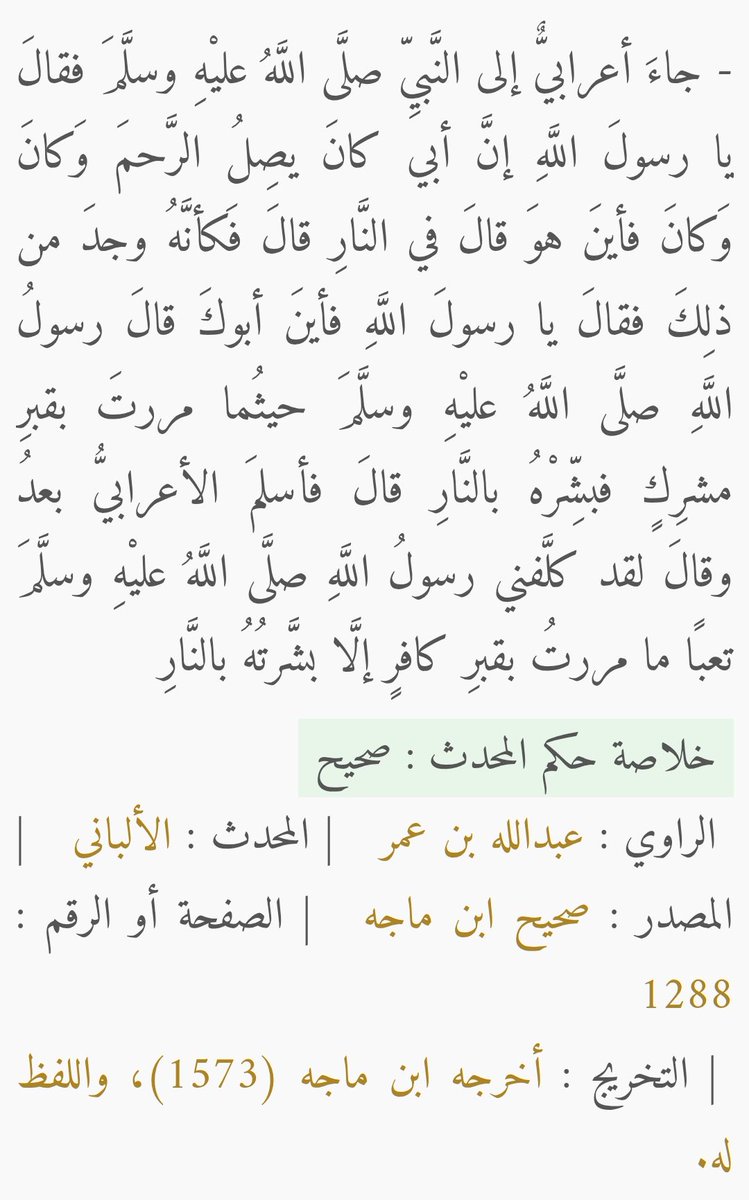 - جاءَ أعرابيٌّ إلى النَّبيِّ صلَّى اللَّهُ عليْهِ وسلَّمَ فقالَ
يا رسولَ اللَّهِ إنَّ أبي كانَ يصِلُ الرَّحمَ وَكانَ
وَكانَ فأينَ هوَ قالَ في النَّارِ قالَ فَكأنَّهُ وجدَ من
ذلِكَ فقالَ يا رسولَ اللَّهِ فأينَ أبوكَ قالَ رسولُ
اللَّهِ صلَّى اللَّهُ عليْهِ وسلَّمَ حيثُما مررتَ بقبرِ
مشرِكٍ فبشِّرْهُ بالنَّارِ قالَ فأسلمَ الأعرابيُّ بعدُ
وقالَ لقد كلَّفني رسولُ اللَّهِ صلَّى اللَّهُ عليْهِ وسلَّمَ
تعبًا ما مررتُ بقبرِ كافرٍ إلَّا بشَّرتُهُ بالنَّارِ
خلاصة حكم المحدث : صحيح
الراوي : عبدالله بن عمر | المحدث : الألباني |
المصدر : صحيح ابن ماجه | الصفحة أو الرقم :
1288
| التخريج : أخرجه ابن ماجه (1573)، واللفظ
له.